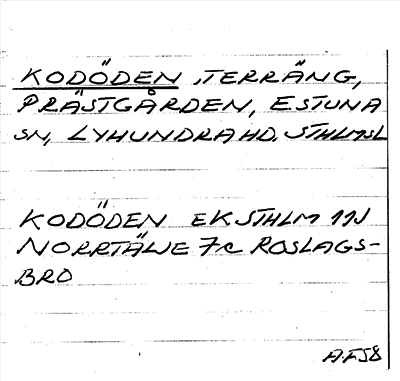 KODÖDEN, TERRÄNG,
PRÄSTGÅRDEN, ESTUNA
SN, LYHUNDRA HD. STHLMSL
KODÖDEN EK STHLM 11J
NORRTÄLJE 7c ROSLAGS-
BRO
A.F 58